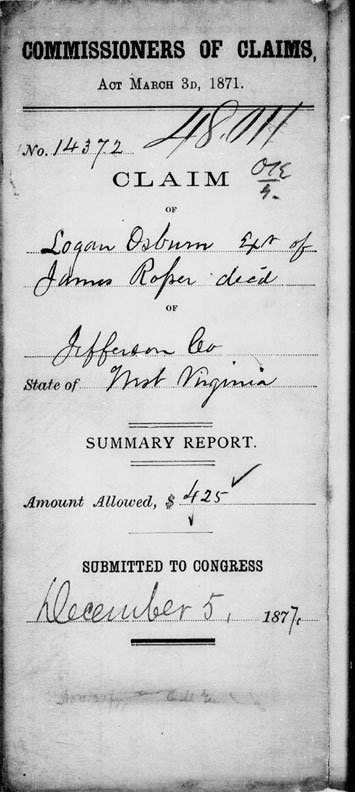 COMMISSIONERS OF CLAIMS,
ACT MARCH 3D, 1871.
48,011
No. 14372
CLAIM
OF
Logan Osburn Exr of
James Roper dec'd
OF
Jefferson Co
State of West Virginia
SUMMARY REPORT.
Amount Allowed, $ 425
SUBMITTED TO CONGRESS
December 5, 1877.